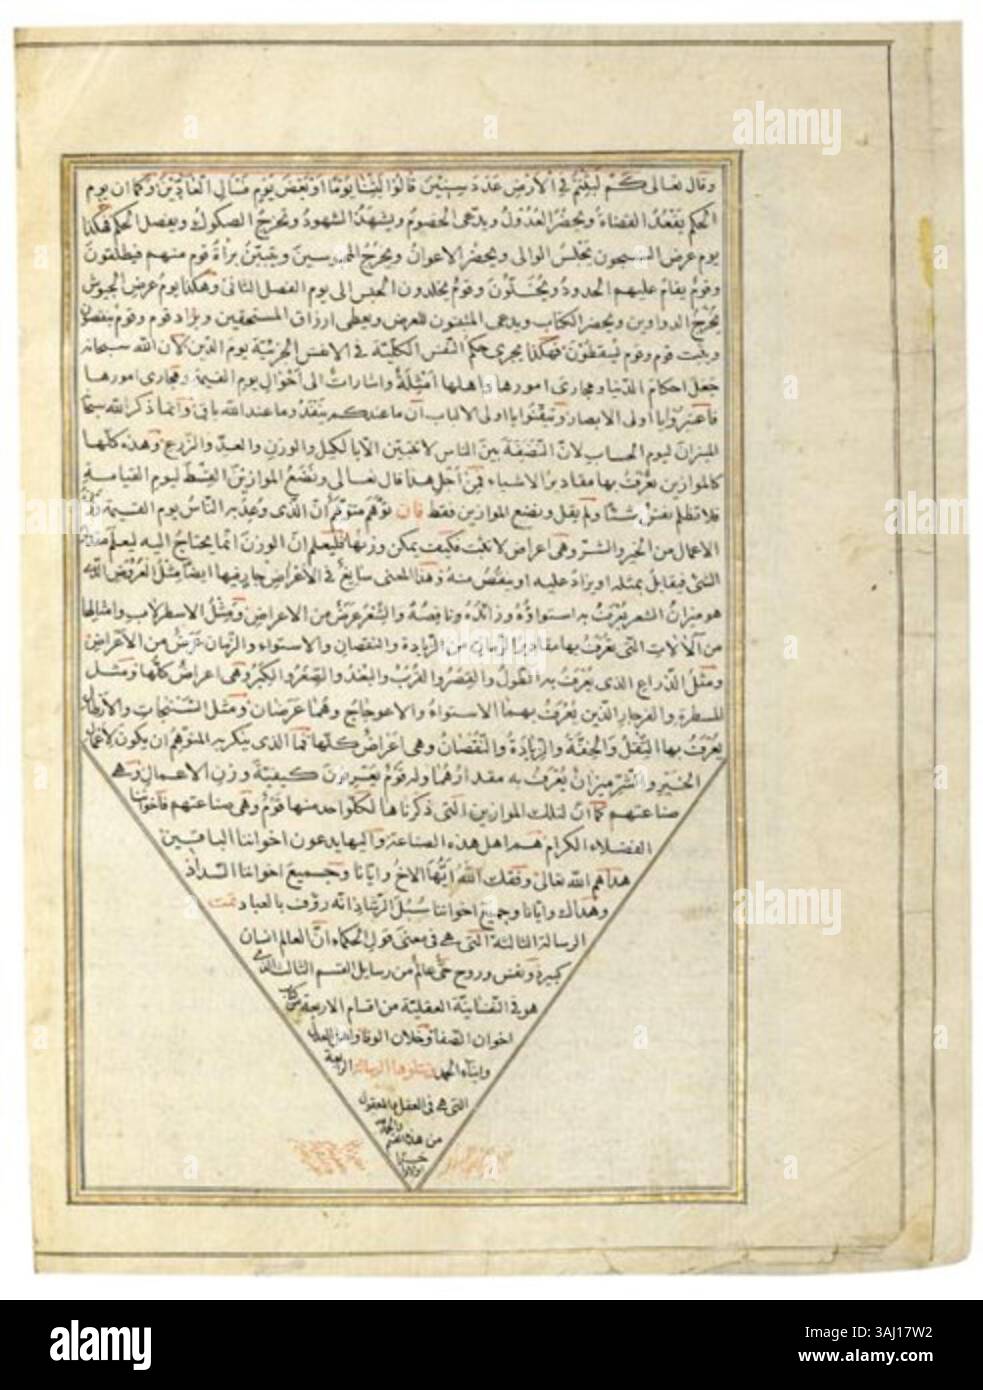 وقال تعالى كم لبثتم في الأرض عدد سنين قالوا لبثنا يوما او بعض يوم فسئل العادّين وكما ان يوم
الحكم يقعد القضاة ويحضر العدول ويدعى الخصوم ويشهد الشهود وتخرج الصكوك ويفصل الحكم هكذا
يوم عرض السجون يجلس الوالى ويحضر الاعوان ويخرج المحبوسين ويتبيّن براة قوم منهم فيطلقون
وقوم يقام عليهم الحدود ويخلّون وقوم يخلدون الحبس الى يوم الفصل الثانى وهكذا يوم عرض الجيوش
يخرج الدواوين ويحضر الكتاب ويدعى المثبتون للعرض ويعطى ارزاق المستحقين ويزاد قوم وقوم ينقصون
ويثبت قوم وقوم يسقطون فهكذا يجرى حكم النفس الكلية في الانفس الجزئية يوم الدين لان الله سبحانه
جعل احكام الدنيا ومجارى امورها واهلها امثلة واشارات الى احوال يوم القيمة ومجارى امورها
فاعتبروا يا اولى الابصار وتيقنوا يا اولى الالباب ان ما عندكم ينفد وما عند الله باق وانما ذكر الله
الميزان ليوم الحساب لان النصفة بين الناس لا تتبيّن الا بالكيل والوزن والعدد والذرع وهذه كلها
كالموازين يعرف بها مقادير الاشياء فمن اجل هذا قال تعالى ونضع الموازين القسط ليوم القيامة
فلا تظلم نفس شيئا ولم يقل ونضع الموازين فقط فان توهّم متوهّم انّ الذى وعد به الناس يوم القيمة
الاعمال من الخير والشرّ وهى اعراض لا تثبت فكيف يمكن وزنها فليعلم ان الوزن انما يحتاج اليه ليعلم
الشئ فيقابل بمثله او يزاد عليه او ينقص منه وهذا المعنى سايغ في الأعراض جار فيها ايضا مثل العروض الذى
هو ميزان الشعر يعرف به استواؤه وزائده وناقصه والشعر عرض من الاعراض ومثل الاسطرلاب وامثالها
من الآلات التى يعرف بها مقادير الزمان من الزيادة والنقصان والاستواء والزمان عرض من الأعراض
ومثل الذراع الذى يعرف به الطول والقصر والقرب والبعد والصغر والكبر وهى اعراض كلها ومثل
المسطرة والفرجار الذين يعرف بهما الاستواء والاعوجاج وهما عرضان ومثل الشنجات والارطال
يعرف بها الثقل والخفة والزيادة والنقصان وهى اعراض كلها فما الذى ينكر به المتوهم ان يكون لأعمال
الخير والشر ميزان يعرف به مقدارهما وله قوم يعبرون كيفية وزن الاعمال وهى
صناعتهم كما ان لتلك الموازين التى ذكرناها لكل واحد منها قوم وهى صناعتهم فاخواننا
الفضلاء الكرام هم اهل هذه الصناعة واليها يدعون اخواننا الباقين
هداهم الله تعالى وفقك الله ايها الاخ وايانا وجميع اخواننا السداد
وهداك وايانا وجميع اخواننا سبل الرشاد انه رؤف بالعباد تمت
الرسالة الثالثة التى هى فى معنى قول الحكماء ان العالم انسان
كبير ذو نفس وروح حىّ عالم من رسايل القسم الثالث الذى
هو فى النفسانية العقلية من اقسام الاربعة من كتاب
اخوان الصفا وخلان الوفا واهل العدل
وابناء الحمد ويتلوها الرسالة الرابعة
التى هى فى العقل والمعقول
من هذا القسم